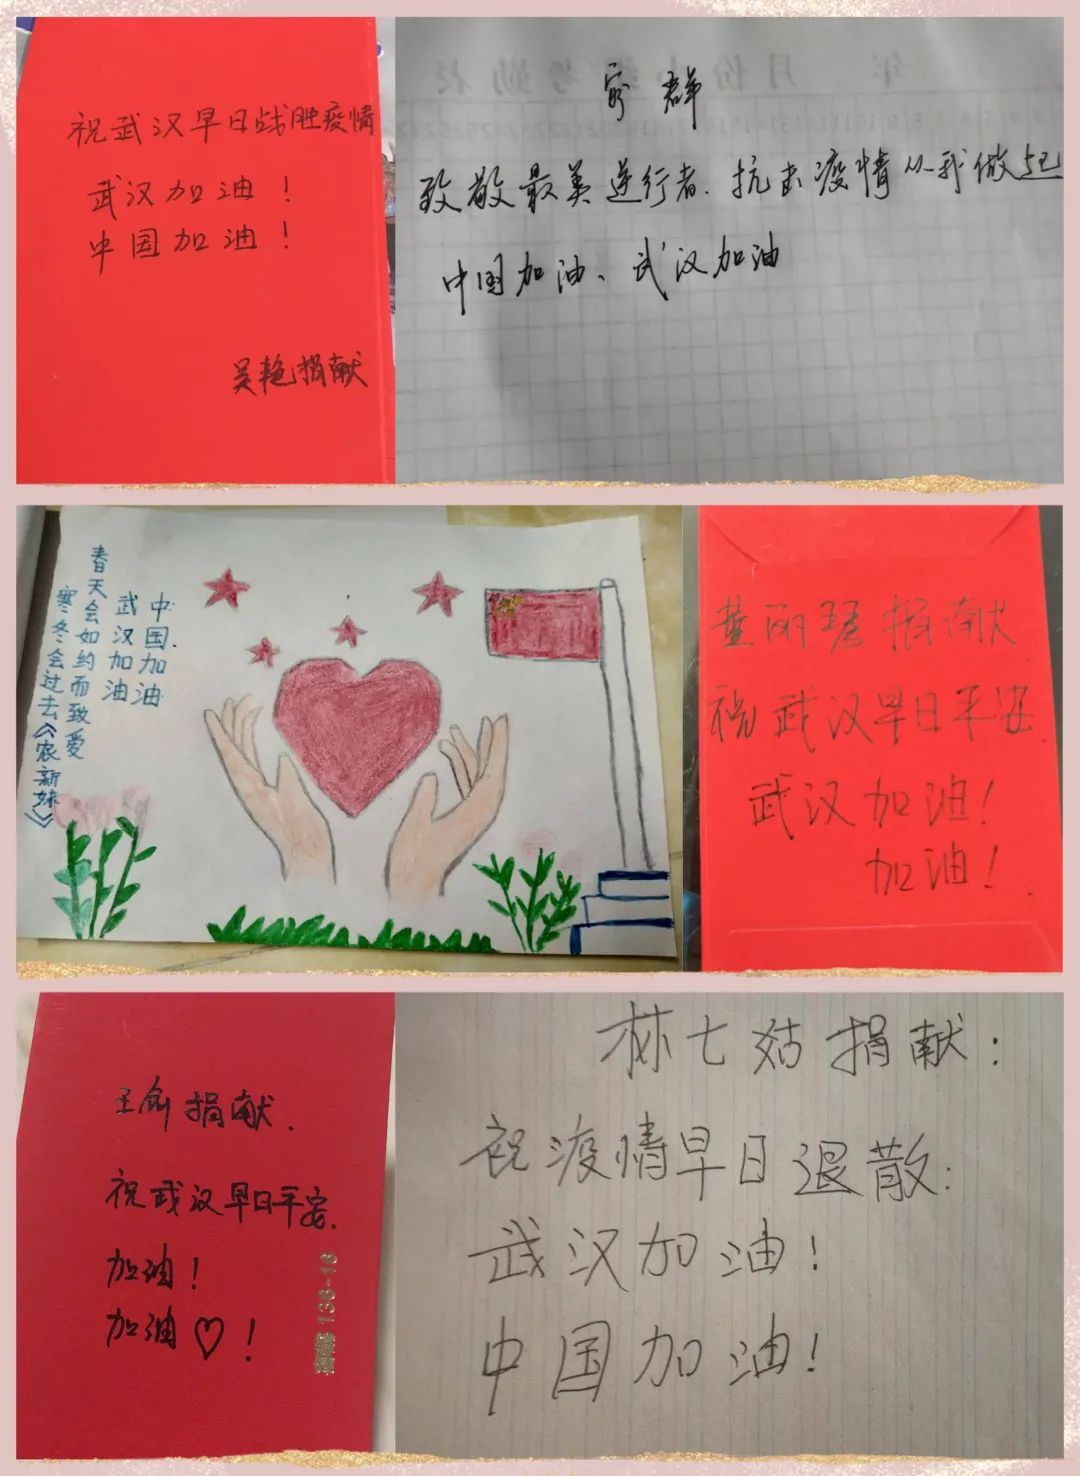 祝武汉早日战胜疫情
武汉加油！
中国加油！
吴艳捐献
群
致敬最美逆行者.抗击疫情从我做起
中国加油、武汉加油
中国加油
武汉加油
春天会如约而致爱
寒冬会过去《农新妹》
董丽君捐献
祝武汉早日平安.
武汉加油！
加油！.
王剑捐献.
祝武汉早日平安.
加油！
加油♡！
136-16
林七姑捐献：
祝疫情早日退散：
武汉加油！
中国加油！